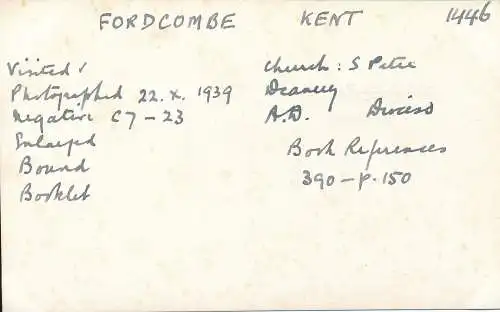 FORDCOMBE KENT 1446
Visited ✓
Photographed 22.x.1939
Negative C7-23
Enlarged
Bound
Booklet
Church: S Peter
Deanery
A.D. Diocese
Book References
390-p.150